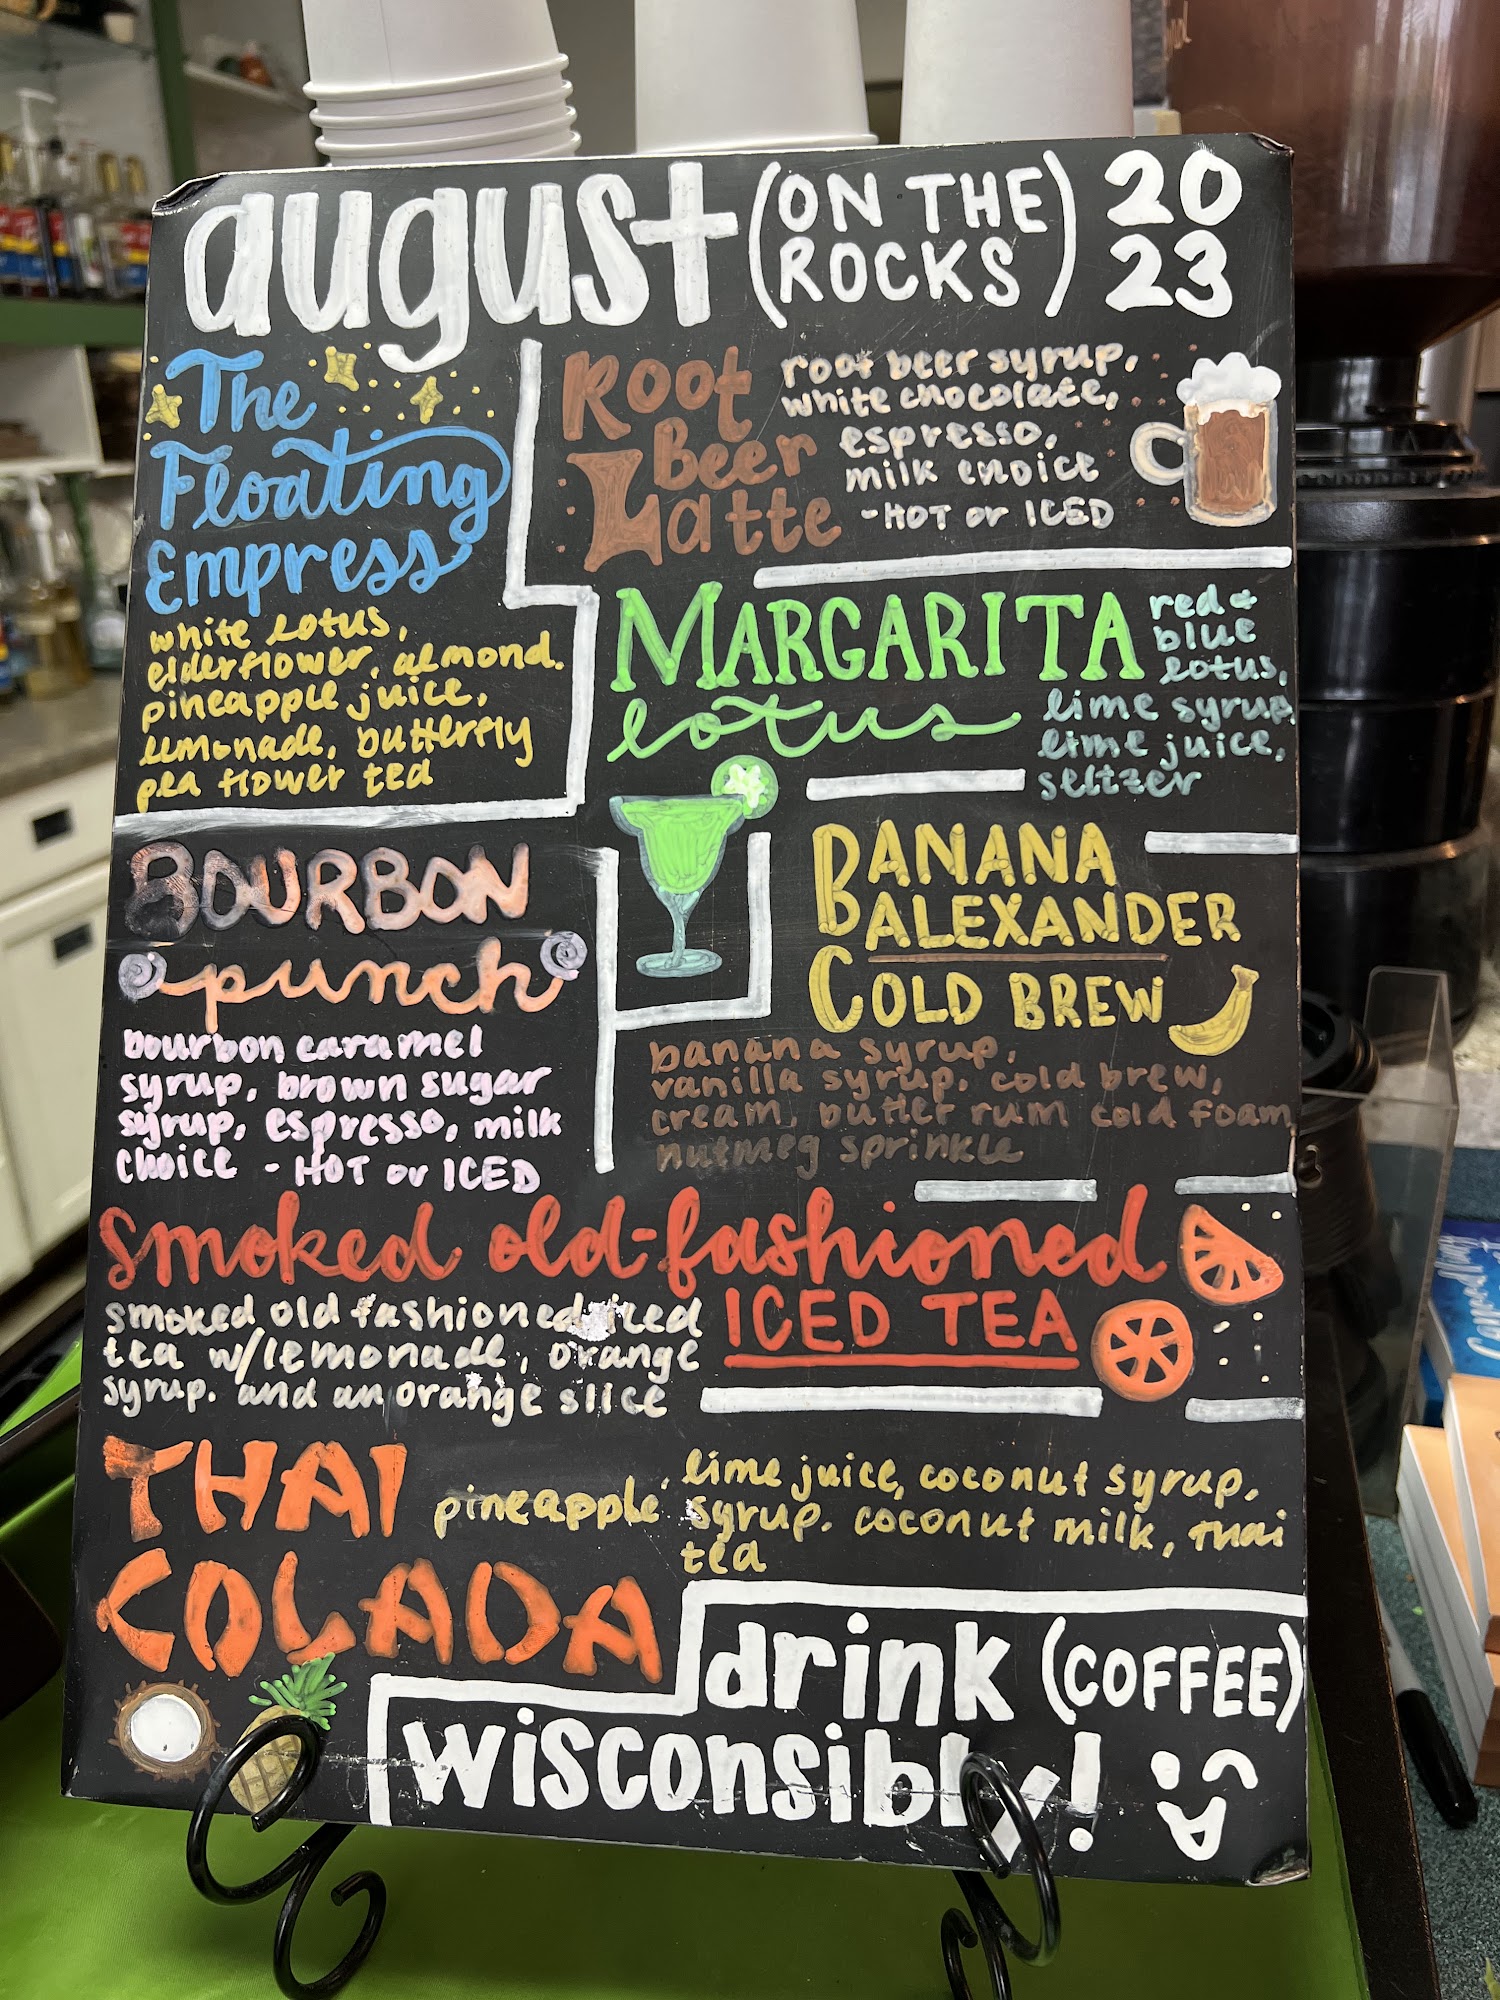 august (ON THE ROCKS) 2023
The
Floating
Empress
white lotus,
elderflower, almond.
pineapple juice,
lemonade, butterfly
pea flower tea
Root
Beer
Latte
root beer syrup,
white chocolate,
espresso,
milk choice
-HOT or ICED
MARGARITA
lotus
red +
blue
lotus,
lime syrup,
lime juice,
seltzer
BOURBON
punch
bourbon caramel
syrup, brown sugar
syrup, espresso, milk
choice - HOT or ICED
BANANA
BALEXANDER
COLD BREW
banana syrup,
vanilla syrup, cold brew,
cream, butter rum cold foam
nutmeg sprinkle
smoked old-fashioned
ICED TEA
smoked old fashioned iced
tea w/lemonade, orange
syrup. and an orange slice
THAI
COLADA
lime juice, coconut syrup,
pineapple syrup. coconut milk, thai
tea
drink (COFFEE)
wisconsibly!